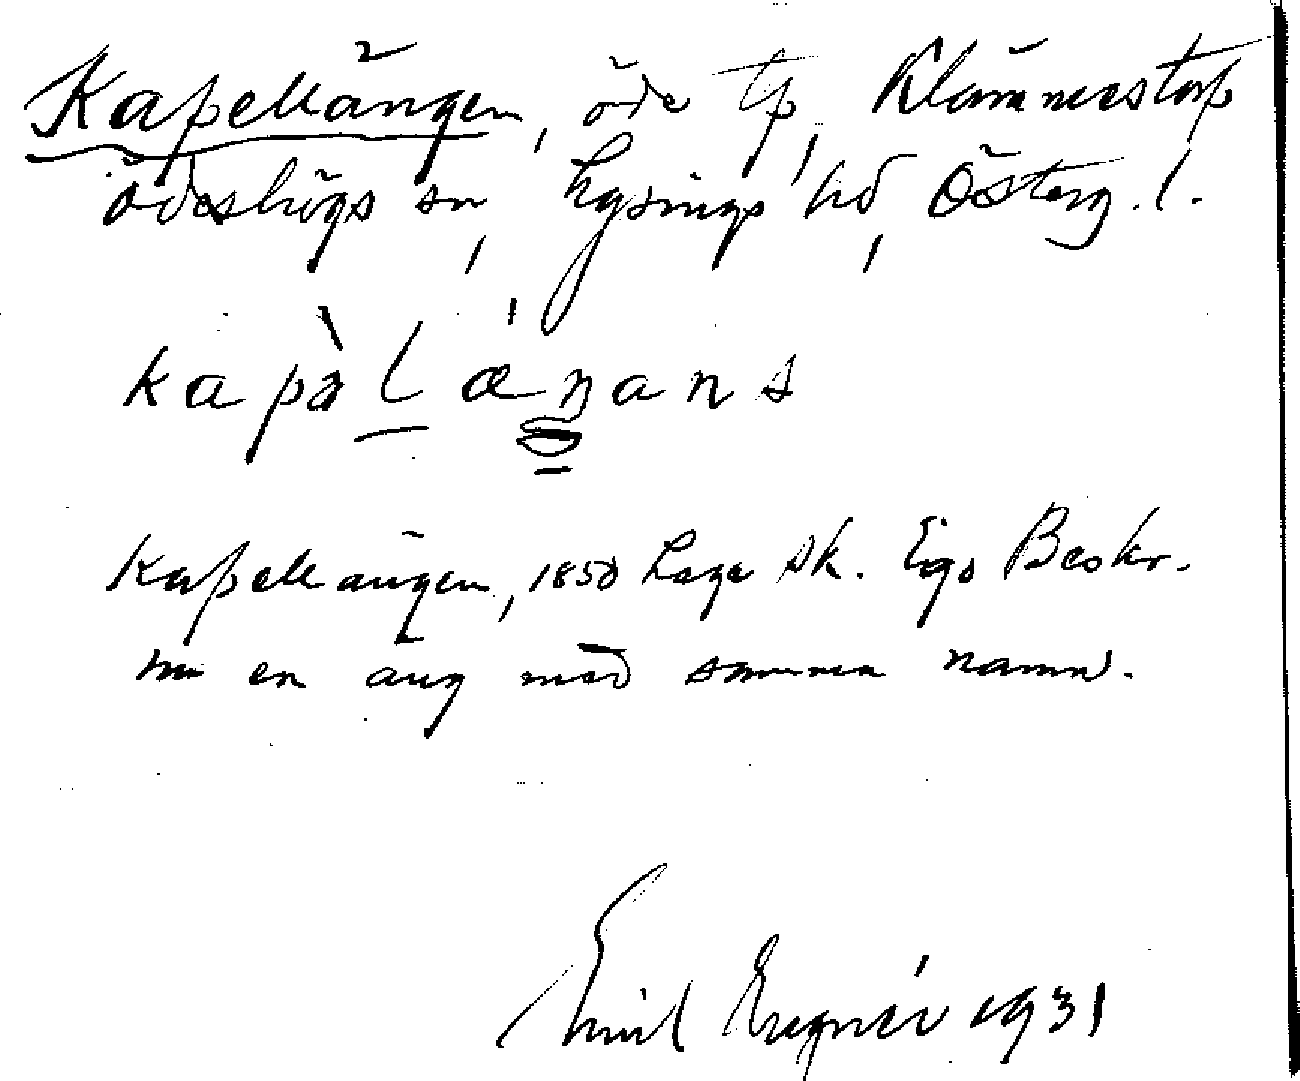 Kapellängen, öde tp, Klämmestorp
Ödeshögs sn, Lysings hd, Österg. l.
kapàlǽŋans
Kapellängen, 1850 Laga sk. Ego Beskr.
nu en äng med samma namn.
Emil 1931